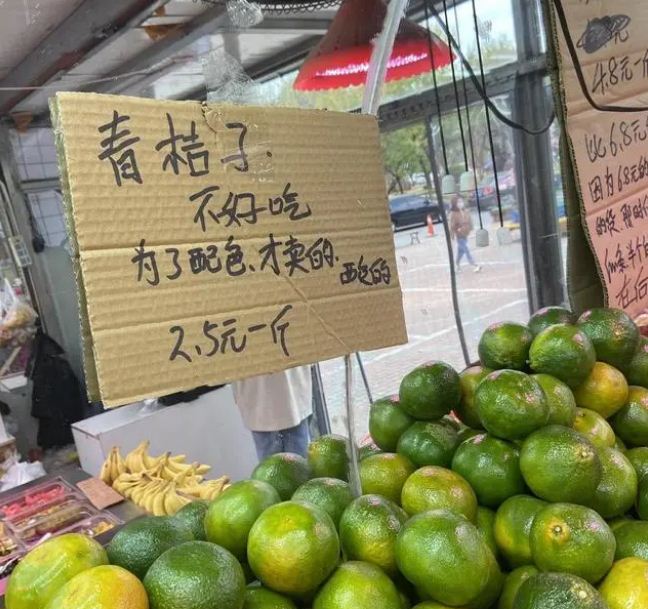 青桔子.
不好吃
为了配色.才卖的.
配色的
2.5元一斤
4.8元一斤
6.8元
因为6.8元的
的货.暂时